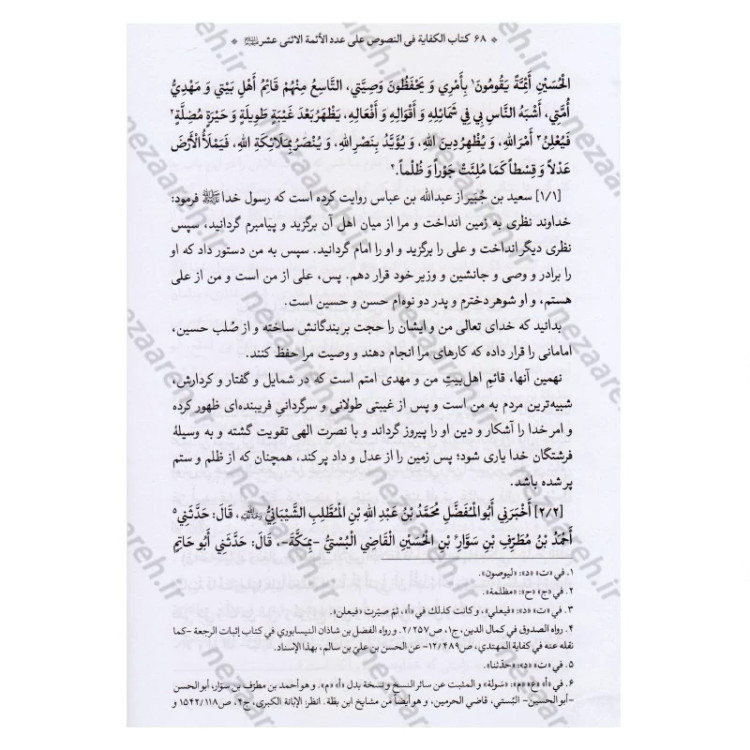 * ۶۸ کتاب الکفایة فی النصوص علی عدد الأئمة الاثنی عشر ﷺ *
الْحُسَيْنِ أَئِمَّةً يَقُومُونَ۱ بِأَمْرِي وَ يَحْفَظُونَ وَصِيَّتِي، التَّاسِعُ مِنْهُمْ قَائِمُ أَهْلِ بَيْتِي وَ مَهْدِيُّ
أُمَّتِي، أَشْبَهُ النَّاسِ بِي فِي شَمَائِلِهِ وَ أَقْوَالِهِ وَ أَفْعَالِهِ، يَظْهَرُ بَعْدَ غَيْبَةٍ طَوِيلَةٍ وَ حَيْرَةٍ مُضِلَّةٍ۲
فَيُعْلِنُ۳ أَمْرَ اللهِ، وَ يُظْهِرُ دِينَ اللهِ، وَ يُؤَيَّدُ بِنَصْرِ اللهِ، وَ يُنْصَرُ بِمَلَائِكَةِ اللهِ، فَيَمْلَأُ الْأَرْضَ
عَدْلًا وَ قِسْطاً كَمَا مُلِئَتْ جَوْراً وَ ظُلْماً.۴
[۱/۱] سعید بن جُبَیر از عبدالله بن عباس روایت کرده است که رسول خدا ﷺ فرمود:
خداوند نظری به زمین انداخت و مرا از میان اهل آن برگزید و پیامبرم گردانید، سپس
نظری دیگر انداخت و علی را برگزید و او را امام گردانید. سپس به من دستور داد که او
را برادر و وصی و جانشین و وزیر خود قرار دهم. پس، علی از من است و من از علی
هستم، و او شوهر دخترم و پدر دو نوه‌ام حسن و حسین است.
بدانید که خدای تعالی من و ایشان را حجت بر بندگانش ساخته و از صُلب حسین،
امامانی را قرار داده که کارهای مرا انجام دهند و وصیت مرا حفظ کنند.
نهمین آنها، قائمِ اهل‌بیتِ من و مهدی امتم است که در شمایل و گفتار و کردارش،
شبیه‌ترین مردم به من است و پس از غیبتی طولانی و سرگردانیِ فریبنده‌ای ظهور کرده
و امر خدا را آشکار و دین او را پیروز گرداند و با نصرت الهی تقویت گشته و به وسیلهٔ
فرشتگان خدا یاری شود؛ پس زمین را از عدل و داد پر کند، همچنان که از ظلم و ستم
پر شده باشد.
[۲/۲] أَخْبَرَنِي أَبُو الْمُفَضَّلِ مُحَمَّدُ بْنُ عَبْدِ اللهِ بْنِ الْمُطَّلِبِ الشَّيْبَانِيُّ، قَالَ: حَدَّثَنِي۵
أَحْمَدُ بْنُ مُطَرِّفِ بْنِ سَوَّارِ۶ بْنِ الْحُسَيْنِ الْقَاضِي الْبُسْتِيُّ -بِمَكَّةَ-، قَالَ: حَدَّثَنِي أَبُو حَاتِمٍ
۱. في «ت» «د»: «ليوصون».
۲. في «ج» «ح»: «مظلمة».
۳. في «ت» «د»: «فيعلي»، وكانت كذلك في «أ»، ثمّ صيّرت «فيعلن».
۴. رواه الصدوق في كمال الدين، ج۱، ص۲/۲۵۷. و رواه الفضل بن شاذان النيسابوري في كتاب إثبات الرجعة -كما
نقله عنه في كفاية المهتدي، ص۱۲/۴۸۹- عن الحسن بن علي بن سالم، بهذا الإسناد.
۵. في «ت» «د»: «حدّثنا».
۶. في «أ» «م»: «سَوَلَة» و المثبت عن سائر النسخ و نسخة بدل «أ» «م». و هو أحمد بن مطرّف بن سوّار، أبو الحسن
-أبو الحسين- البُستي، قاضي الحرمين. و هو أيضاً من مشايخ ابن بطّة. انظر: الإبانة الكبرى، ج۴، ص۱۵۴۲/۱۱۸ و
nezaareh.ir